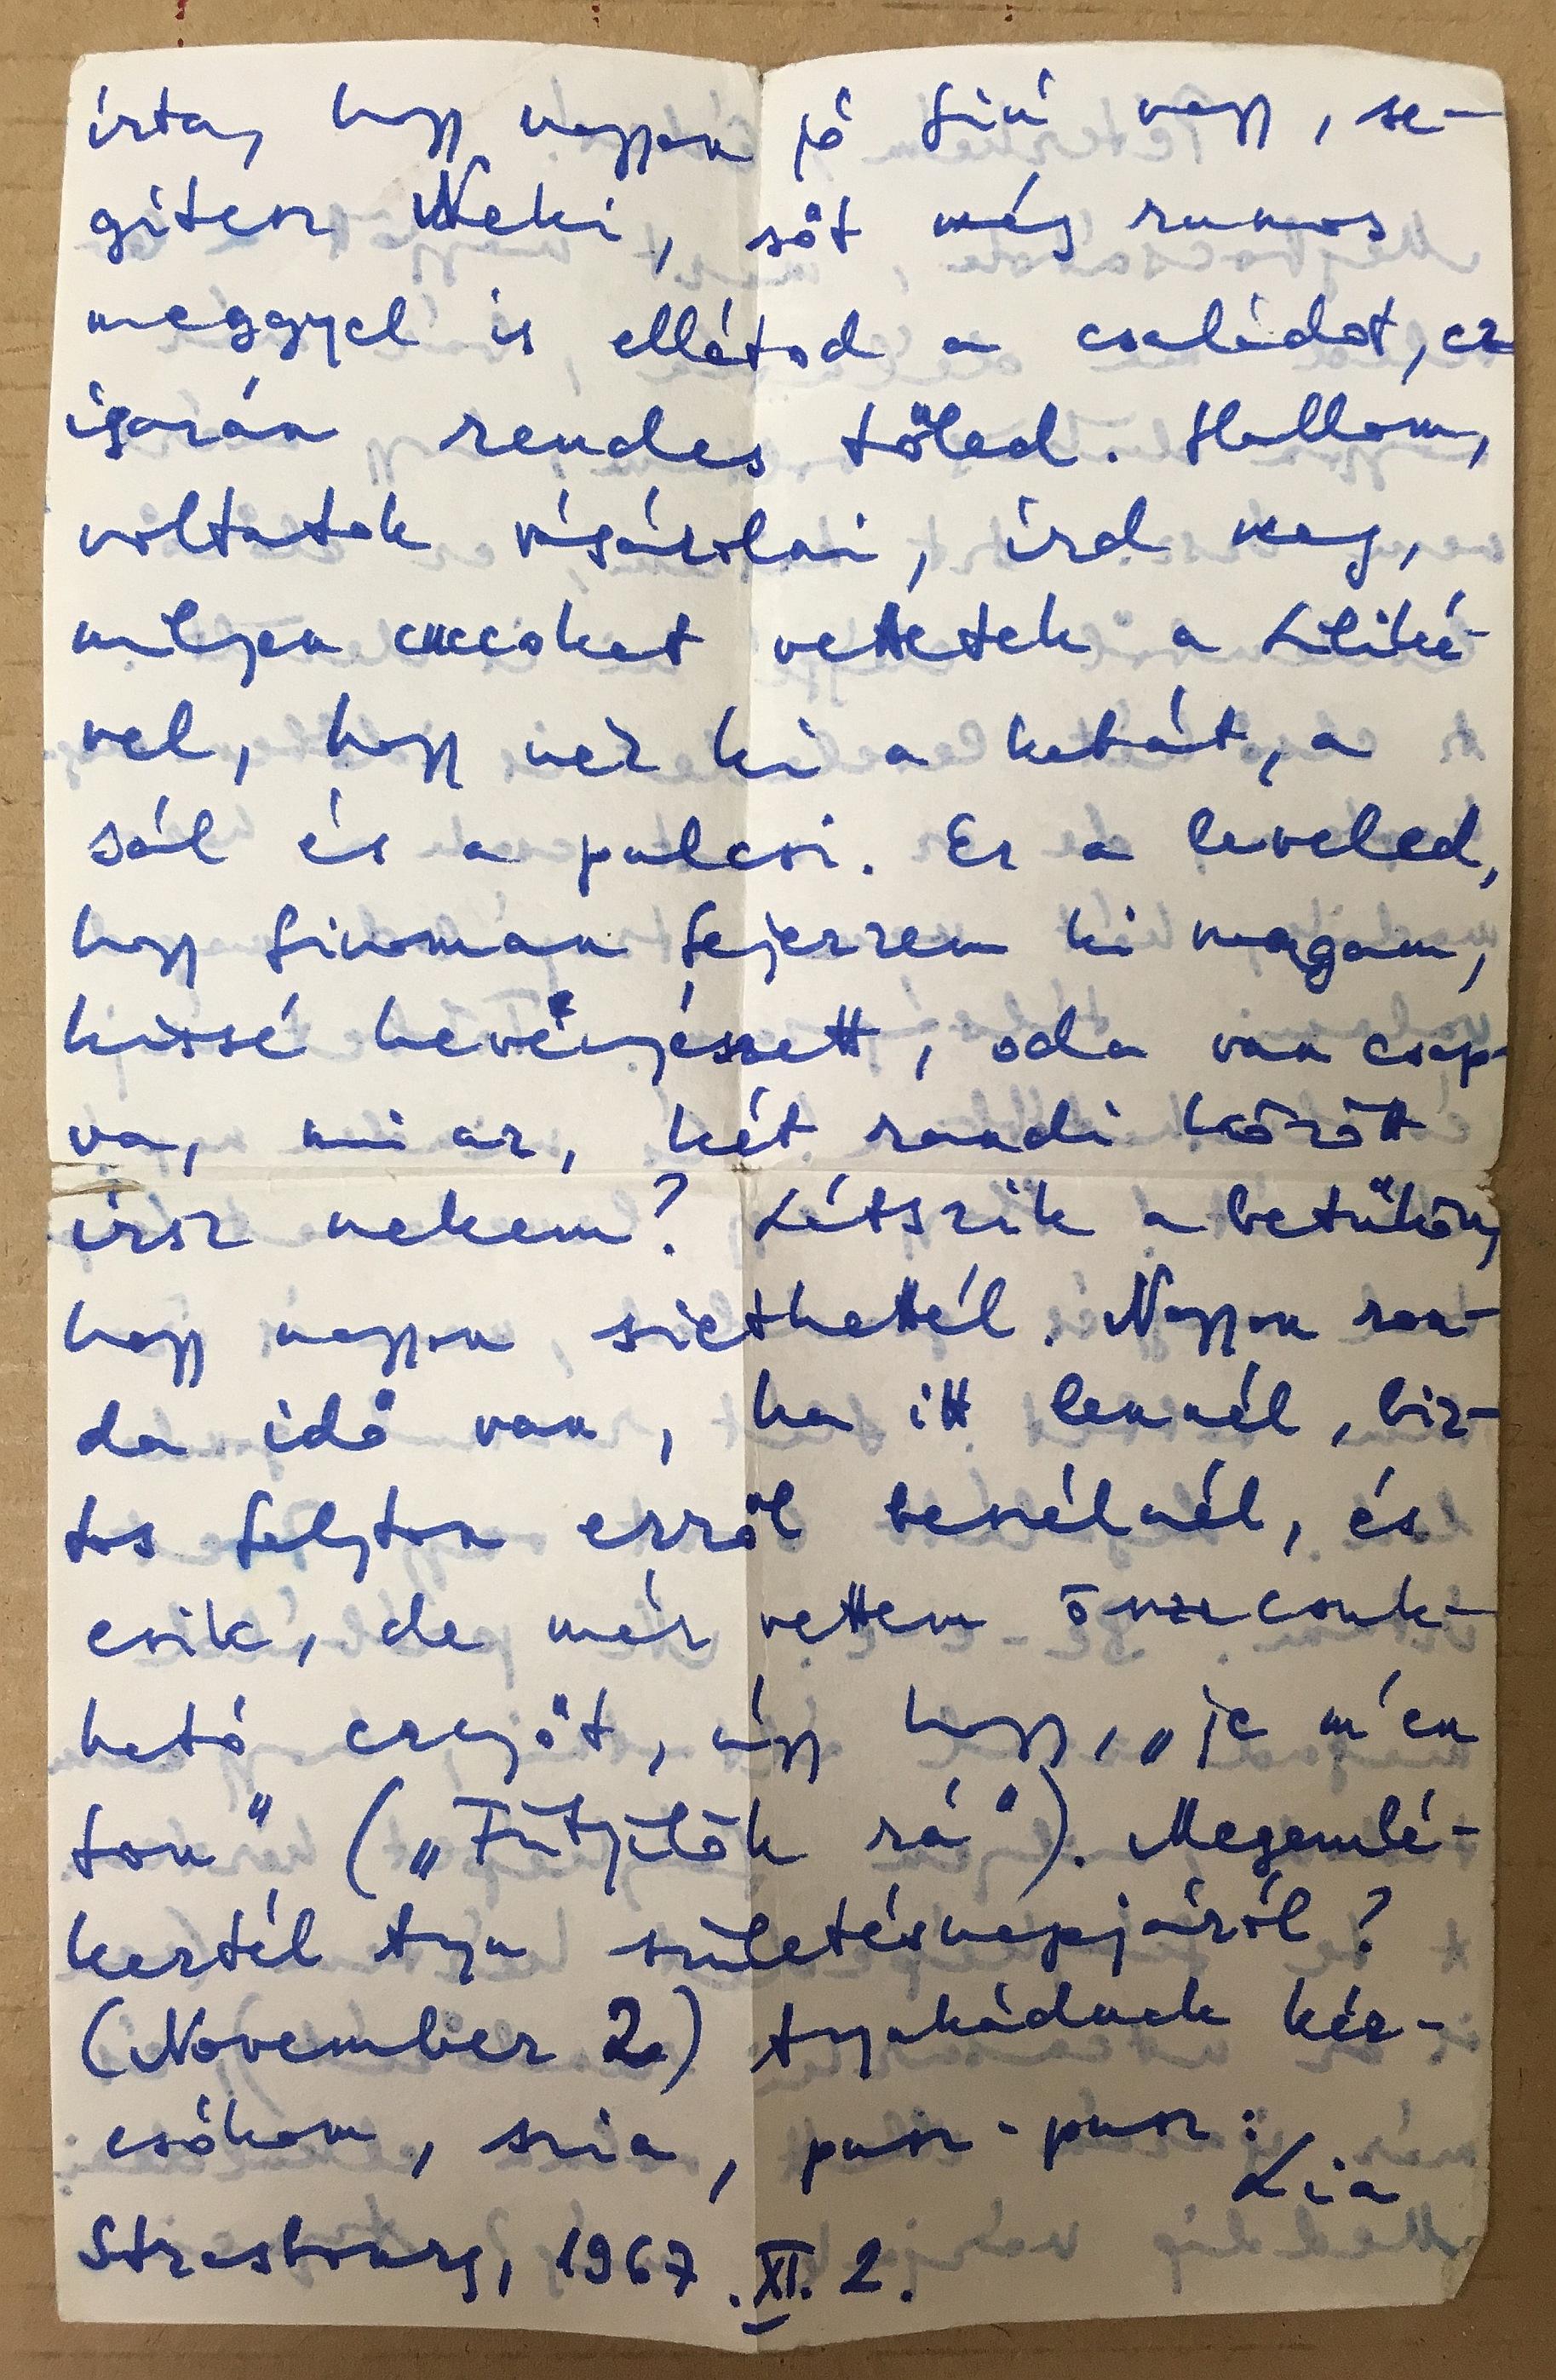 írta, hogy nagyon jó fiú vagy, se-
gítesz Neki, sőt még rumos
meggyel is ellátod a családot, ez
igazán rendes tőled. Hallom,
voltatok vásárolni, írd meg,
milyen cuccokat vettetek a Liliké-
vel, hogy néz ki a kabát, a
sál és a pulcsi. Ez a leveled,
hogy finoman fejezzem ki magam,
kissé kevéske, oda van csap-
va, mi az, két randi között
írsz nekem? Látszik a betűkön,
hogy nagyon siethettél. Nagyon ron-
da idő van, ha itt lennél, biz-
tos folyton erről beszélnél, és
esik, de már vettem összecsuk-
ható ernyőt, úgy hogy, „je m'en
fou" („Fütyülök rá"). Megemlé-
keztél Anya születésnapjáról?
(November 2) Anyukádnak kéz-
csókom, szia, pusz-pusz:
Lia
Strasbourg, 1967. XI. 2.